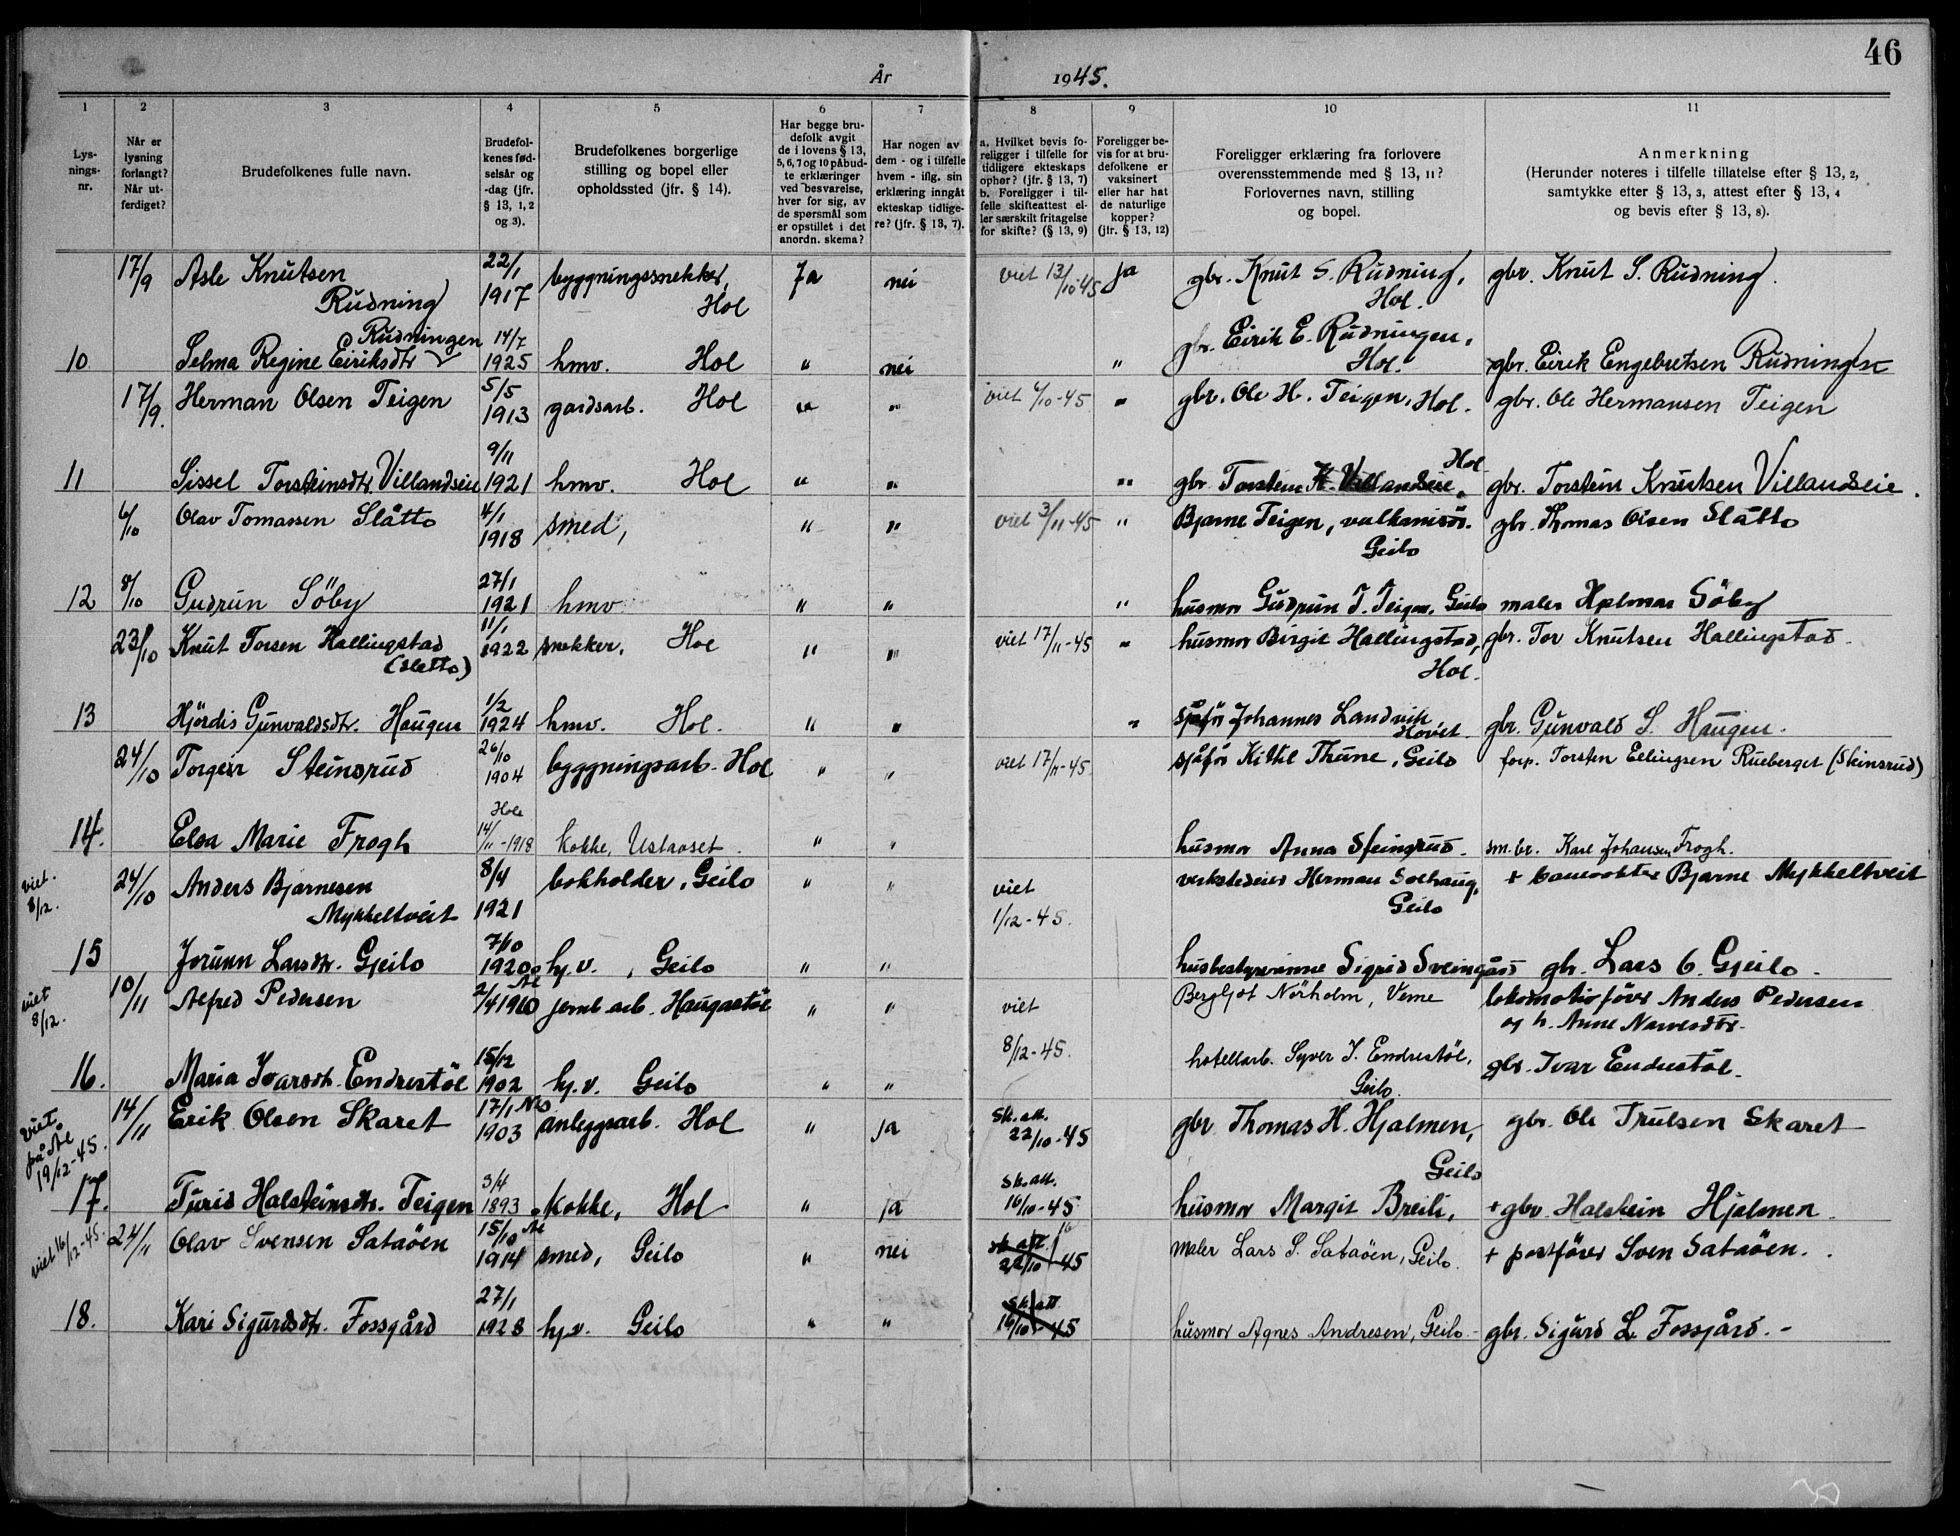 46
År 1945.
1 2 3 4 5 6 7 8 9 10 11
Lys-
nings-
nr.
Når er
lysning
forlangt?
Når ut-
ferdiget?
Brudefolkenes fulle navn.
Brudefol-
kenes fød-
selsår og
-dag (jfr.
§ 13, 1, 2
og 3).
Brudefolkenes borgerlige
stilling og bopel eller
opholdssted (jfr. § 14).
Har begge bru-
defolk avgit
de i lovens § 13,
5, 6, 7 og 10 påbud-
te erklæringer
ved besvarelse,
hver for sig, av
de spørsmål som
er opstillet i det
anordn. skema?
Har nogen av
dem - og i tilfelle
hvem - iflg. sin
erklæring inngåt
ekteskap tidlige-
re? (jfr. § 13, 7).
a. Hvilket bevis fo-
religger i tilfelle for
tidligere ekteskaps
ophør? (jfr. § 13, 7)
b. Foreligger i til-
felle skifteattest el-
ler særskilt fritagelse
for skifte? (§ 13, 9)
Foreligger be-
vis for at bru-
defolkene er
vaksinert
eller har hat
de naturlige
kopper?
(jfr. § 13, 12)
Foreligger erklæring fra forlovere
overensstemmende med § 13, 11?
Forlovernes navn, stilling
og bopel.
Anmerkning
(Herunder noteres i tilfelle tillatelse efter § 13, 2,
samtykke efter § 13, 3, attest efter § 13, 4
og bevis efter § 13, 8).
17/9 Asle Knutsen Rudning 22/1 1917 byggningssnekker, Hol Ja nei viet 13/10-45 ja gbr. Knut S. Rudning, Hol. gbr. Knut S. Rudning.
10 Selma Regine Eiriksdtr Rudningen 14/7 1925 hmv. Hol " nei " gbr. Eirik E. Rudningen, Hol. gbr. Eirik Engebretsen Rudningen
17/9. Herman Olsen Teigen 5/5 1913 gardsarb. Hol " " viet 6/10-45 " gbr. Ole H. Teigen, Hol. gbr. Ole Hermansen Teigen
11 Sissel Torsteinsdtr. Villandseie 9/11 1921 hmv. Hol " " " gbr Torstein K. Villandseie, Hol gbr. Torstein Knutsen Villandseie.
6/10 Olav Tomassen Slåtto 4/1 1918 smed, " " viet 3/11-45 " Bjarne Teigen, vulkanisør. Geilo gbr. Thomas Olsen Slåtto
12 8/10 Gudrun Söby 27/1 1921 hmv " " " husmor Gudrun T. Teigen, Geilo maler Hjalmar Söby
23/10 Knut Torsen Hallingstad (Sletto) 11/1 1922 snekker. Hol " " viet 17/11-45 " husmor Birgit Hallingstad, Hol. gbr. Tor Knutsen Hallingstad.
13 Hjördis Gunvaldsdtr. Haugen 1/2 1924 hmv. Hol. " " " sjåför Johannes Landvik, Hovet. gbr. Gunvald S. Haugen.
24/10 Torgeir Steinsrud 26/10 1904 byggningsarb. Hol " " viet 17/11-45. sjåför Kittil Thune, Geilo forp. Torsten Ellingsen Rueberget (Steinsrud)
14. Elsa Marie Frogh Hole 14/11-1918 kokke, Ustaoset. " " husmor Anna Steinsrud. sm.br. Karl Johansen Frogh.
viet. 8/12. 24/10 Anders Bjarnesen Mykkeltveit 8/4 1921 bokholder, Geilo " " viet 1/12-45. verkstedeier Herman Solhaug, Geilo + banevokter Bjarne Mykkeltveit
15 Jorunn Larsdtr. Gjeilo 7/10 1920 hj.v., Geilo " " husbestyrerinne Sigrid Sveingård gbr. Lars O. Gjeilo.
viet 8/12. 10/11 Alfred Pedersen 2/4 1910 Ål jernb.arb. Haugastöl " " viet 8/12-45. Bergljot Nörholm, Verne lokomotivförer Anders Pedersen og h. Anne Narvesdtr.
16. Maria Ivarsdtr. Endrestöl 15/12 1902 hj.v. Geilo " " hotellarb. Syver I. Endrestöl, Geilo. gbr. Ivar Endrestöl.
Viet på Ål 19/12-45. 14/11 Erik Olsen Skaret 17/1 1903 anleggsarb. Hol " ja Sk.att. 22/10-45 gbr Thomas H. Hjalmen, Geilo gbr. Ole Trulsen Skaret
17. Turid Halsteinsdtr. Teigen 3/4 1893 kokke, Hol " ja Sk.att. 16/10-45 husmor Margit Breili, + gbr. Halstein Hjalmen.
viet 16/12-45. 24/11 Olav Svensen Sataöen 15/10 Ål 1914 smed, Geilo " nei sk.att. 22/10-45 maler Lars S. Sataöen, Geilo. + postförer Sven Sataöen.
18. Kari Sigurdsdtr. Fossgård 27/1 1928 hj.v. Geilo " " Sk.att 16/10-45 husmor Agnes Andresen, Geilo.- gbr. Sigurd L. Fossgård.-